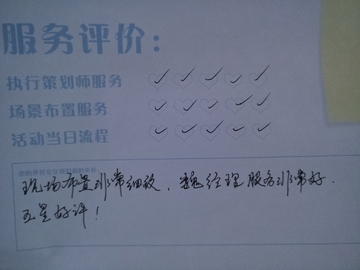 服务评价:
执行策划师服务
场景布置服务
活动当日流程
现场布置非常细致，魏经理服务非常好.
五星好评！